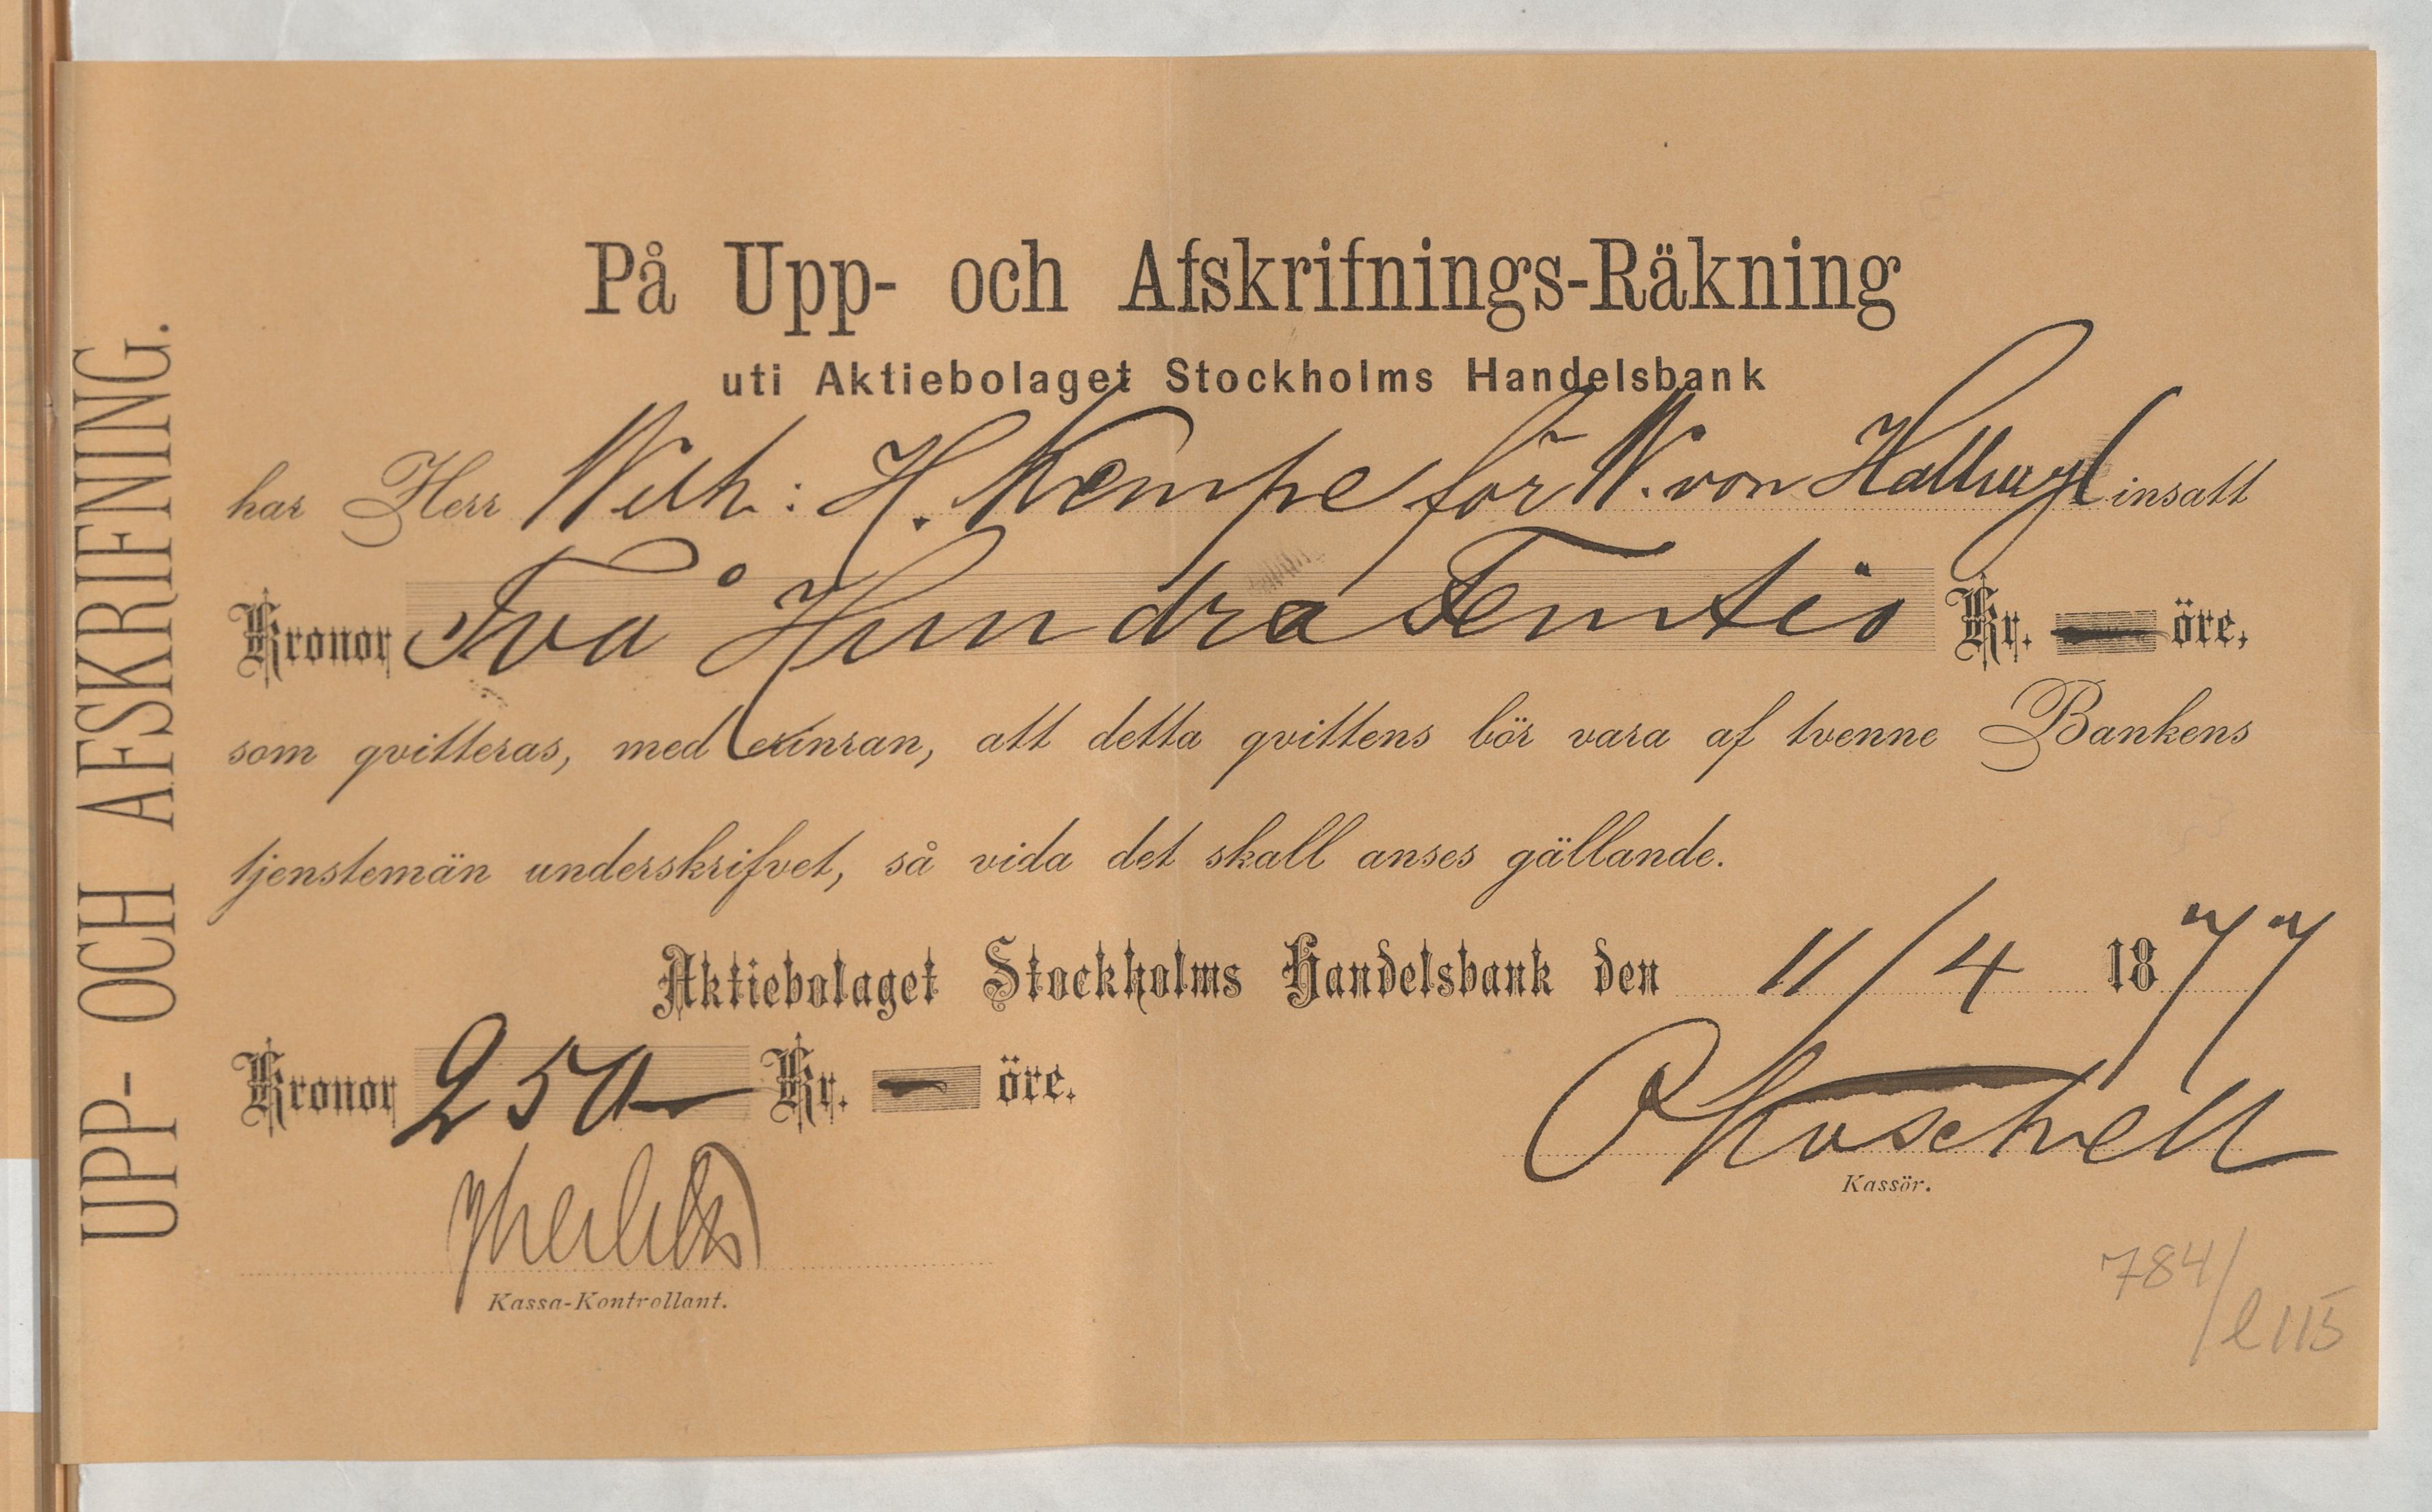 UPP- OCH AFSKRIFNING.
På Upp- och Afskrifnings-Räkning
uti Aktiebolaget Stockholms Handelsbank
har Herr Wilh: H. Kempe för W. von Hallwyl insatt
Kronor Två Hundra Femtio Kr. — öre,
som qvitteras, med erinran, att detta qvittens bör vara af tvenne Bankens
tjenstemän underskrifvet, så vida det skall anses gällande.
Aktiebolaget Stockholms Handelsbank den 11/4 1877
Kronor 250 — Kr. — öre.
Kassör.
Kassa-Kontrollant.
784/l115